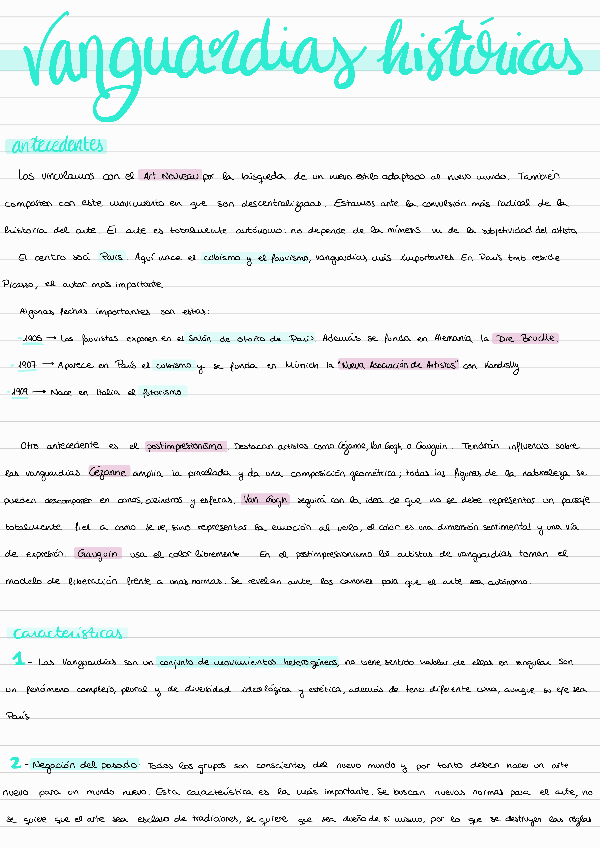 Vanguardias históricas
antecedentes
Las vinculamos con el Art Nouveau por la búsqueda de un nuevo estilo adaptado al nuevo mundo. También
comparten con este movimiento en que son descentralizados. Estamos ante la convulsión más radical de la
historia del arte. El arte es totalmente autónomo: no depende de la mímesis ni de la subjetividad del artista.
El centro será París. Aquí nace el cubismo y el fauvismo, vanguardias más importantes. En París tmb reside
Picasso, el autor más importante.
Algunas fechas importantes son estas:
· 1905 → Los fauvistas exponen en el Salón de otoño de París. Además se funda en Alemania la Die Brucke.
· 1907 → Aparece en París el cubismo y se funda en Múnich la "Nueva Asociación de Artistas" con Kandisky
· 1909 → Nace en Italia el futurismo
Otro antecedente es el postimpresionismo. Destacan artistas como Cézanne, Van Gogh o Gauguin. Tendrán influencia sobre
las vanguardias. Cézanne amplia la pincelada y da una composición geométrica; todas las figuras de la naturaleza se
pueden descomponer en conos, cilindros y esferas. Van Gogh seguirá con la idea de que no se debe representar un paisaje
totalmente fiel a como se ve, sino representar la emoción al verlo, el color es una dimensión sentimental y una vía
de expresión. Gauguin usa el color libremente. En el postimpresionismo los artistas de vanguardias toman el
modelo de liberación frente a unas normas. Se revelan ante los canones para que el arte sea autónomo.
Características
1 - Las Vanguardias son un conjunto de movimientos heterogéneos, no tiene sentido hablar de ellas en singular. Son
un fenómeno complejo, plural y de diversidad ideológica y estética, además de tener diferente cuna, aunque su eje sea
París
2 - Negación del pasado: Todos los grupos son conscientes del nuevo mundo y por tanto deben hacer un arte
nuevo para un mundo nuevo. Esta característica es la más importante. Se buscan nuevas normas para el arte, no
se quiere que el arte sea esclavo de tradiciones, se quiere que sea dueño de sí mismo, por lo que se destruyen las reglas